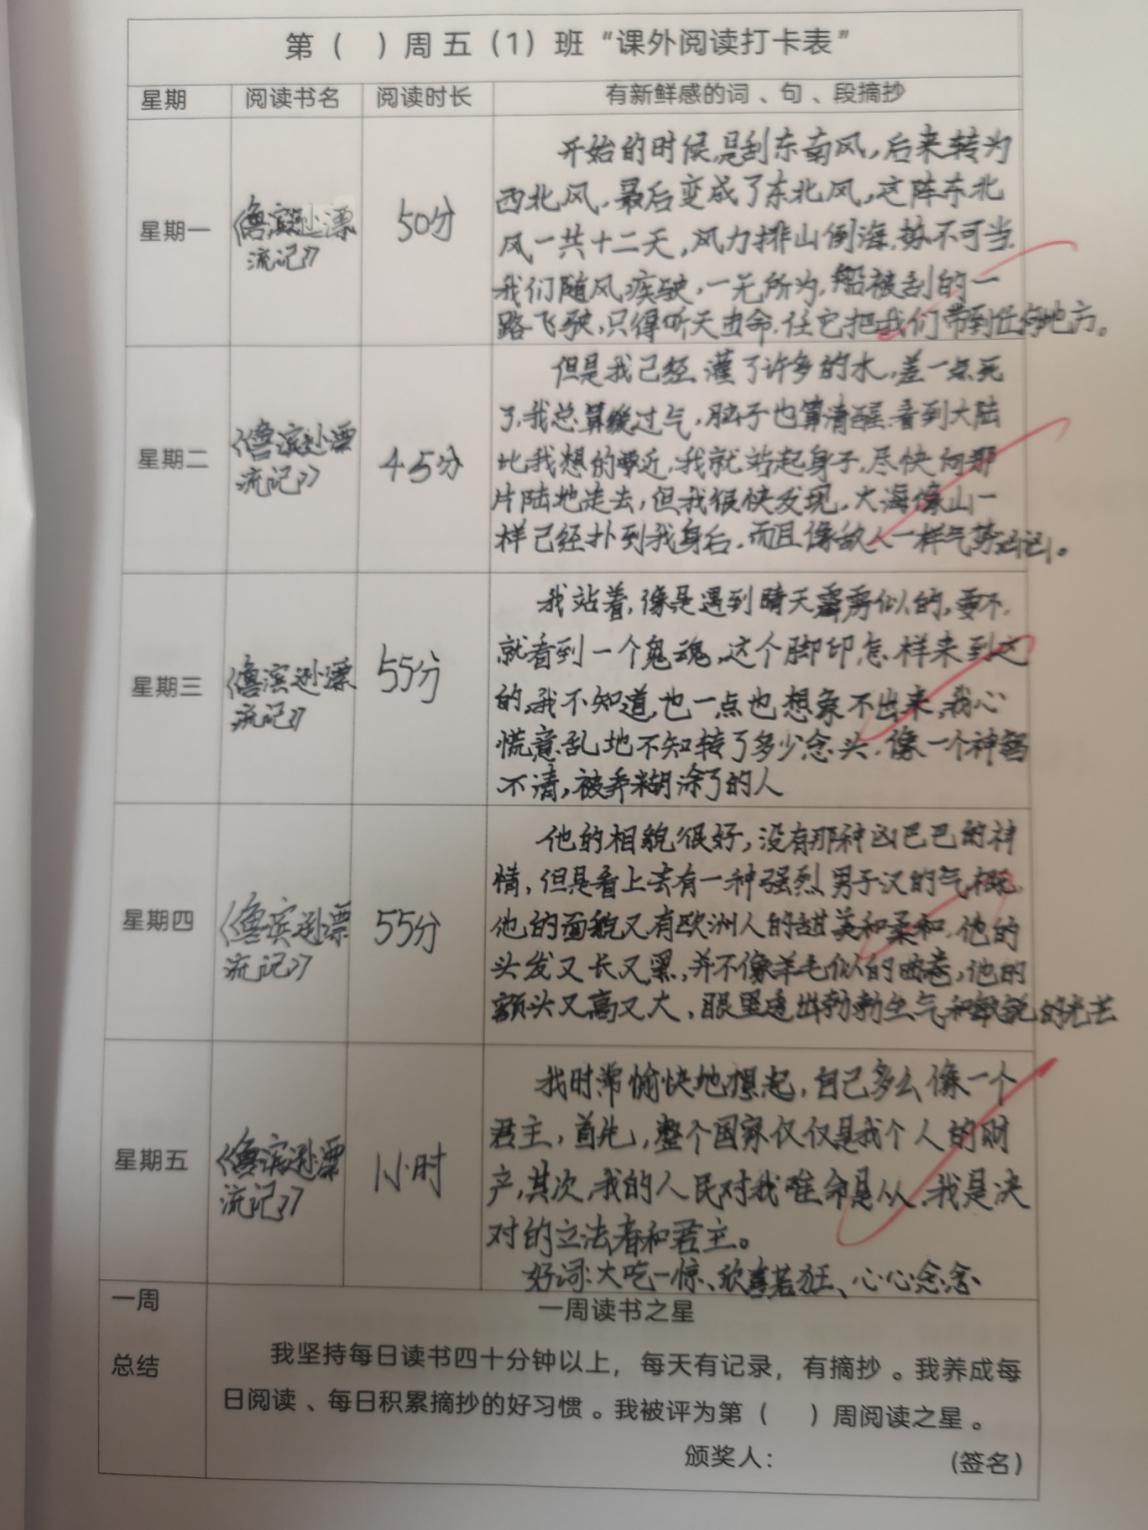 第（ ）周五（1）班“课外阅读打卡表”
星期 阅读书名 阅读时长 有新鲜感的词、句、段摘抄
星期一
《鲁滨逊漂
流记》
50分
开始的时候,是刮东南风,后来转为
西北风,最后变成了东北风,这阵东北
风一共十二天,风力排山倒海,势不可当
我们随风疾驶,一无所为,船被刮的一
路飞驶,只得听天由命,任它把我们带到任何地方。
星期二
《鲁滨逊漂
流记》
45分
但是我已经灌了许多的水,差一点死
了,我总算缓过气,脑子也算清醒,看到大陆
比我想的要近,我就站起身子,尽快向那
片陆地走去,但我很快发现,大海像山一
样已经扑到我身后,而且像敌人一样气势汹汹。
星期三
《鲁滨逊漂
流记》
55分
我站着,像是遇到晴天霹雳似的,要不
就看到一个鬼魂,这个脚印怎样来到这
的,我不知道,也一点也想象不出来,我心
慌意乱地不知转了多少念头,像一个神智
不清,被弄糊涂了的人
星期四
《鲁宾逊漂
流记》
55分
他的相貌很好,没有那种凶巴巴的神
情,但是看上去有一种强烈男子汉的气概,
他的面貌又有欧洲人的甜美和柔和,他的
头发又长又黑,并不像羊毛似的曲卷,他的
额头又高又大,眼里透出勃勃生气和敏锐的光芒
星期五
《鲁滨逊漂
流记》
1小时
我时常愉快地想起,自己多么像一个
君主,首先,整个国家仅仅是我个人的财
产,其次,我的人民对我唯命是从,我是决
对的立法者和君主。
好词:大吃一惊、欣喜若狂、心心念念
一周
总结
一周读书之星
我坚持每日读书四十分钟以上，每天有记录，有摘抄。我养成每
日阅读、每日积累摘抄的好习惯。我被评为第（ ）周阅读之星。
颁奖人： (签名)